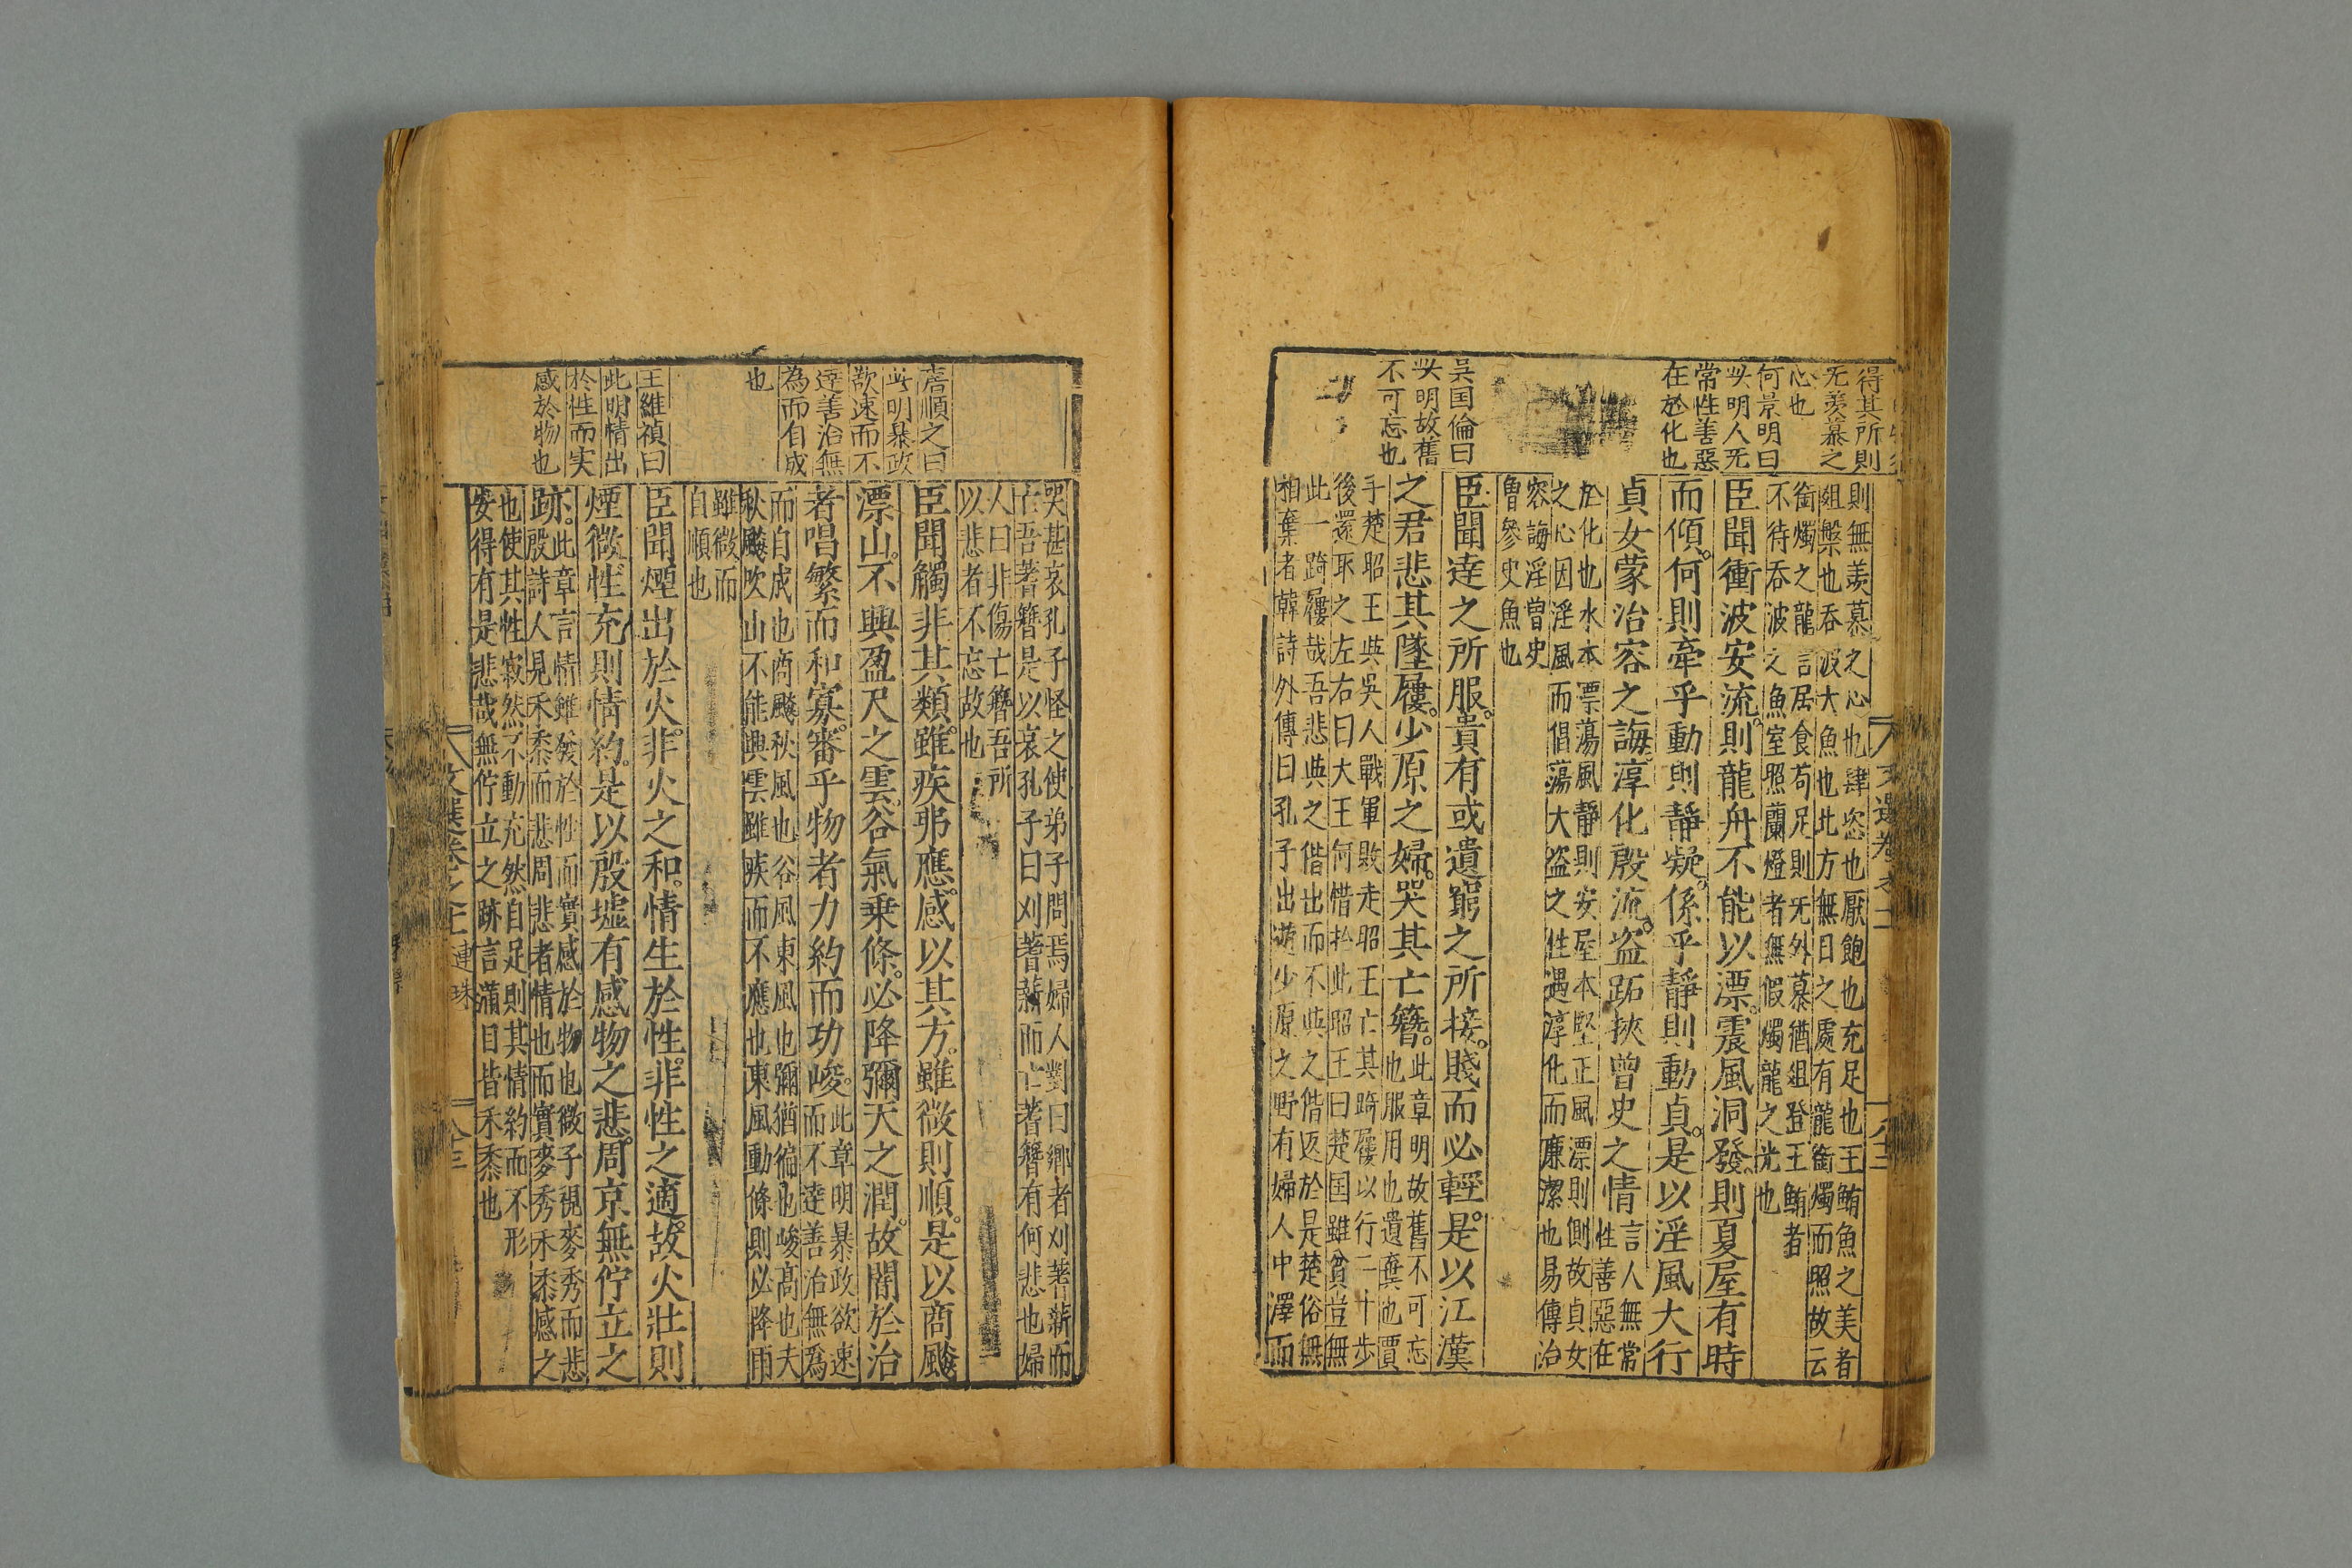 得其所則
无羨慕之
心也
何景明曰
此明人无
常性善惡
在於化也
吳国倫曰
此明故舊
不可忘也
則無羨慕之心也肆恣也厭飽也充足也王鮪魚之美者
俎槃也吞波大魚也北方無日之處有龍銜燭而照故云
銜燭之龍言居食苟足則无外慕猶俎登王鮪者
不待吞波之魚室照蘭燈者無假燭龍之光也
臣聞衝波安流則龍舟不能以漂震風洞發則夏屋有時
而傾何則牽乎動則靜凝係乎靜則動貞是以淫風大行
貞女蒙治容之誨淳化殷流盜跖挾曾史之情
言人無常
性善惡在
於化也水本漂蕩風靜則安屋本堅正風漂則側故貞女
之心因淫風而倡蕩大盜之性遇淳化而廉潔也易傳治
容誨淫曾史
曾參史魚也
臣聞達之所服貴有或遺窮之所接賤而必輕是以江漢
之君悲其墜屨少原之婦哭其亡簪
此章明故舊不可忘
也服用也遺棄也賈
子楚昭王與吳人戰軍敗走昭王亡其踦屨以行二十步
後還取之左右曰大王何惜於此昭王曰楚国雖貧豈無
此一踦屨哉吾悲與之偕出而不與之偕返於是楚俗無
相棄者韓詩外傳曰孔子出遊少原之野有婦人中澤而
文選卷之十二
八十三
唐順之曰
此明暴政
欲速而不
達善治無
為而自成
也
王維禎曰
此明情出
於性而实
感於物也
哭甚哀孔子怪之使弟子問焉婦人對曰鄉者刈蓍薪而
亡吾蓍簪是以哀孔子曰刈蓍薪而亡蓍簪有何悲也婦
人曰非傷亡簪吾所
以悲者不忘故也
臣聞觸非其類雖疾弗應感以其方雖微則順是以商飈
漂山不興盈尺之雲谷氣乗條必降彌天之潤故闇於治
者唱繁而和寡審乎物者力約而功峻
此章明暴政欲速
而不達善治無為
而自成也商飈秋風也谷風東風也彌猶徧也峻髙也夫
秋飈吹山不能興雲雖疾而不應也東風動條則必降雨
雖微而
自順也
臣聞煙出於火非火之和情生於性非性之適故火壯則
煙微性充則情約是以殷墟有感物之悲周京無佇立之
跡
此章言情雖發於性而實感於物也微子視麥秀而悲
殷詩人見禾黍而悲周悲者情也而實麥秀禾黍感之
也使其性寂然不動充然自足則其情約而不形
安得有是悲哉無佇立之跡言滿目皆禾黍也
連珠
八十三